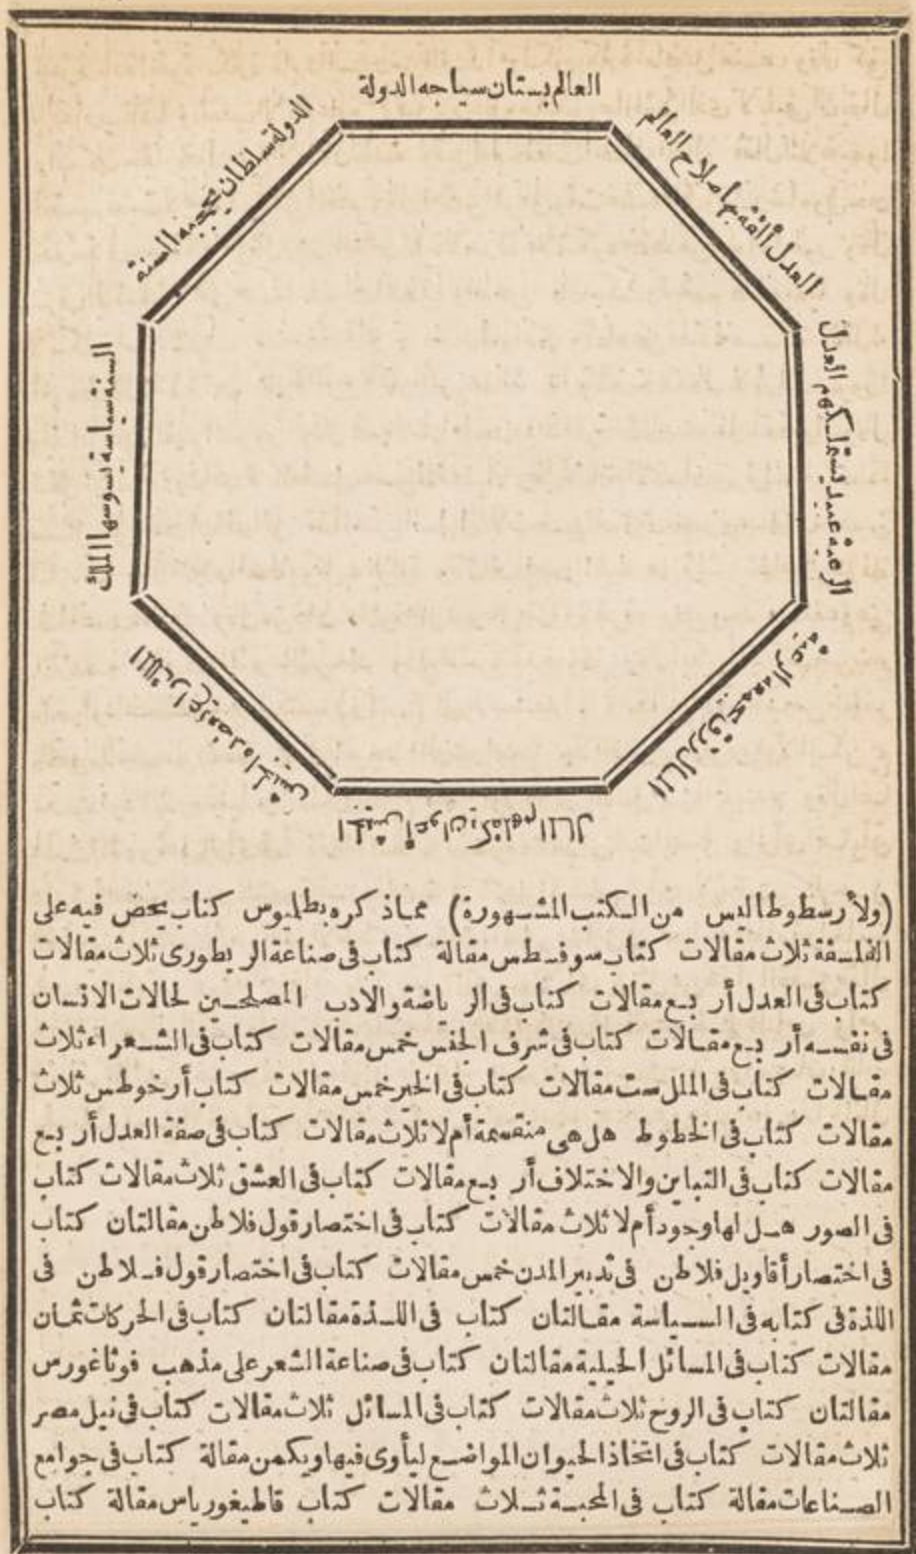 العالم بستان سياجه الدولة
الدولة سلطان تحجبه السنة
السنة سياسة يسوسها الملك
الملك راع يعضده الجيش
الجيش أعوان يكفلهم المال
المال رزق تجمعه الرعية
الرعية عبيد يستملكهم العدل
العدل ألفة بها صلاح العالم
(ولأرسطوطاليس من الكتب المشهورة) مما ذكره بطليوس كتاب يحض فيه على
الفلسفة ثلاث مقالات كتاب سوفسطس مقالة كتاب في صناعة الريطورى ثلاث مقالات
كتاب في العدل أربع مقالات كتاب في الرياضة والادب المصلحين لحالات الانسان
في نفسه أربع مقالات كتاب في شرف الجنس خمس مقالات كتاب في الشعراء ثلاث
مقالات كتاب في الملك ست مقالات كتاب في الخير خمس مقالات كتاب أرخوطس ثلاث
مقالات كتاب في الخطوط هل هى منقسمة أم لا ثلاث مقالات كتاب في صفة العدل أربع
مقالات كتاب في التباين والاختلاف أربع مقالات كتاب في العشق ثلاث مقالات كتاب
في الصور هل لها وجود أم لا ثلاث مقالات كتاب في اختصار قول فلاطن مقالتان كتاب
في اختصار أقاويل فلاطن في تدبير المدن خمس مقالات كتاب في اختصار قول فلاطن في
اللذة في كتابه في السياسة مقالتان كتاب في اللذة مقالتان كتاب في الحركات ثمان
مقالات كتاب في المسائل الحيلية مقالتان كتاب في صناعة الشعر على مذهب فوثاغورس
مقالتان كتاب في الروح ثلاث مقالات كتاب في المسائل ثلاث مقالات كتاب في نيل مصر
ثلاث مقالات كتاب في اتخاذ الحيوان المواضع ليأوى فيها ويكمن مقالة كتاب في جوامع
الصناعات مقالة كتاب في المحبة ثلاث مقالات كتاب قاطيغورياس مقالة كتاب